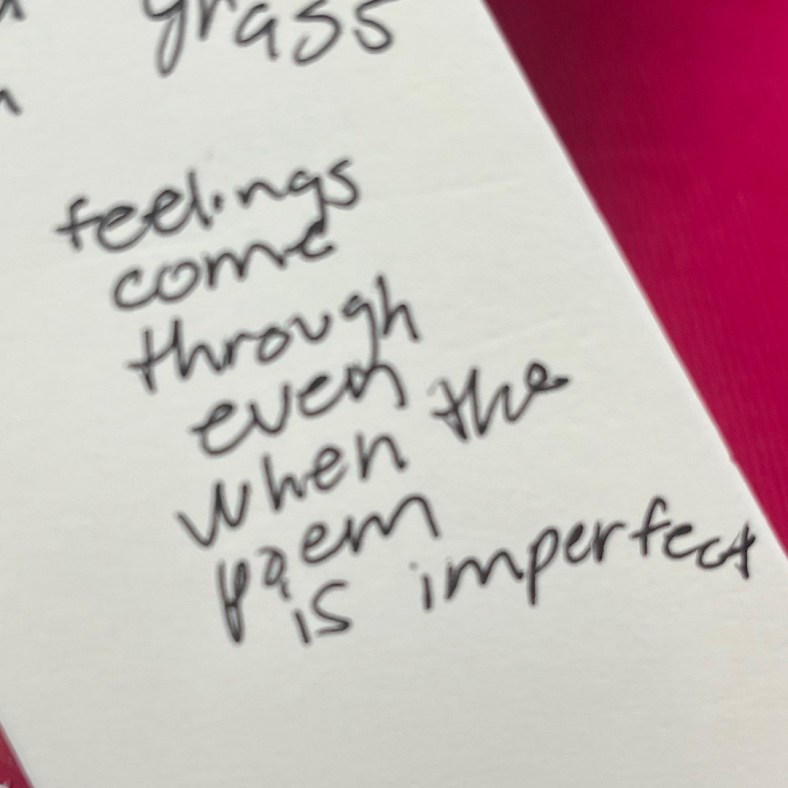 grass
feelings
come
through
even
when the
poem
is imperfect